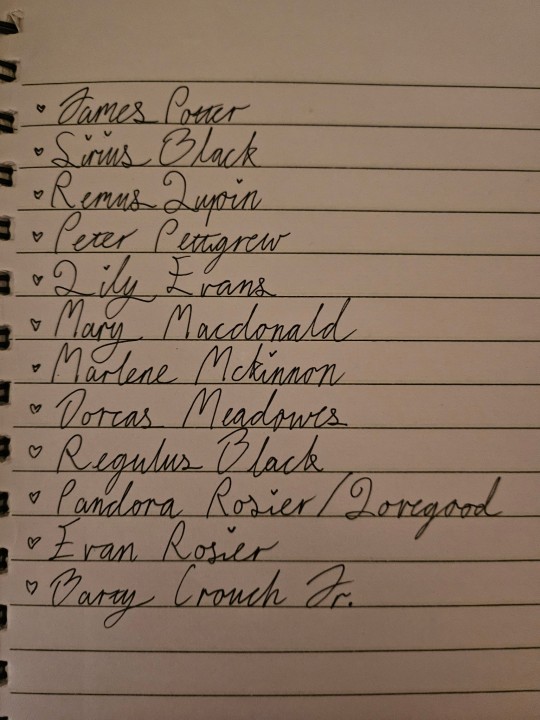 ♡ James Potter
♡ Sirius Black
♡ Remus Lupin
♡ Peter Pettigrew
♡ Lily Evans
♡ Mary Macdonald
♡ Marlene Mckinnon
♡ Dorcas Meadowes
♡ Regulus Black
♡ Pandora Rosier/Lovegood
♡ Evan Rosier
♡ Barty Crouch Jr.